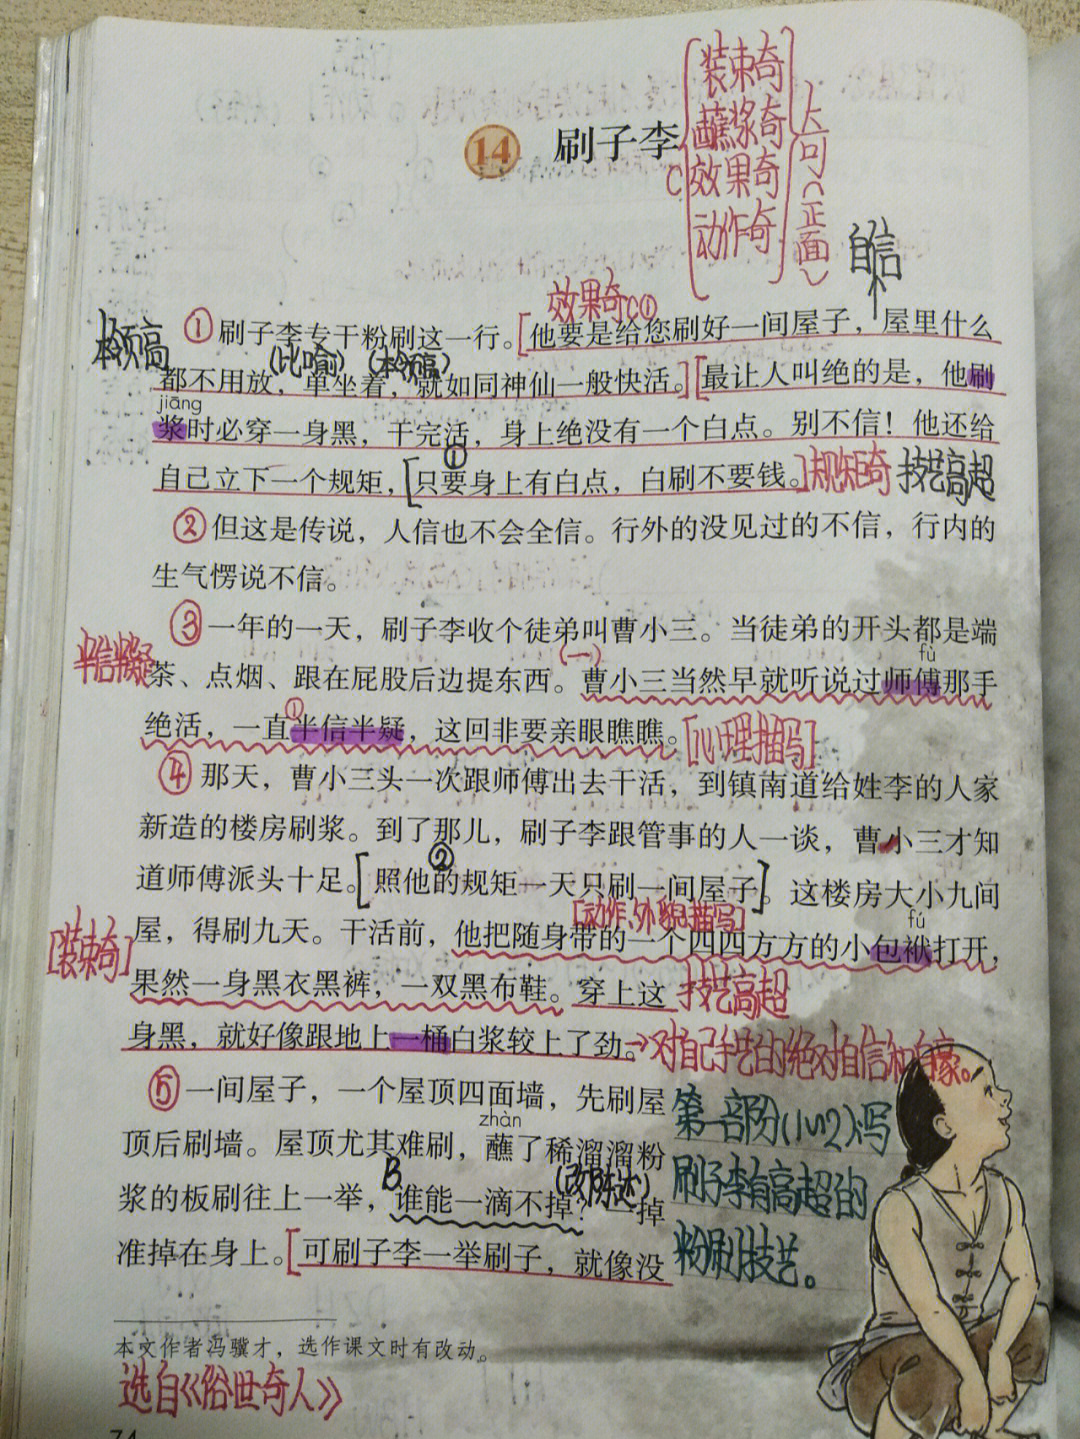 装束奇
蘸浆奇
14 刷子李
C 效果奇
动作奇
大可(正面)
自信
效果奇C①
本领高
① 刷子李专干粉刷这一行。[他要是给您刷好一间屋子，屋里什么
(比喻) (本领高)
都不用放，单坐着，就如同神仙一般快活。][最让人叫绝的是，他刷
jiāng
浆时必穿一身黑，干完活，身上绝没有一个白点。别不信！他还给
①
自己立下一个规矩，[只要身上有白点，白刷不要钱。]规矩奇 技艺高超
② 但这是传说，人信也不会全信。行外的没见过的不信，行内的
生气愣说不信。
③ 一年的一天，刷子李收个徒弟叫曹小三。当徒弟的开头都是端
半信半疑
(一)
fù
茶、点烟、跟在屁股后边提东西。曹小三当然早就听说过师傅那手
①
绝活，一直半信半疑，这回非要亲眼瞧瞧。[心理描写]
④ 那天，曹小三头一次跟师傅出去干活，到镇南道给姓李的人家
新造的楼房刷浆。到了那儿，刷子李跟管事的人一谈，曹小三才知
②
道师傅派头十足。[照他的规矩一天只刷一间屋子]。这楼房大小九间
[动作、外貌描写]
fú
屋，得刷九天。干活前，他把随身带的一个四四方方的小包袱打开，
[装束奇]
果然一身黑衣黑裤，一双黑布鞋。穿上这 技艺高超
身黑，就好像跟地上一桶白浆较上了劲。→对自己手艺的绝对自信和自豪。
⑤ 一间屋子，一个屋顶四面墙，先刷屋
第一部分(1~2)写
zhàn
顶后刷墙。屋顶尤其难刷，蘸了稀溜溜粉
B.
(改陈述)
刷子李有高超的
浆的板刷往上一举，谁能一滴不掉？一掉
粉刷技艺。
准掉在身上。[可刷子李一举刷子，就像没
本文作者冯骥才，选作课文时有改动。
选自《俗世奇人》
74